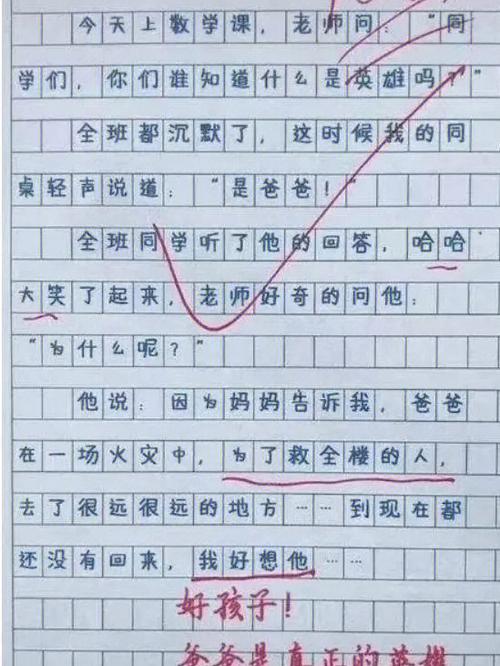 今天上数学课，老师问："同
学们，你们谁知道什么是英雄吗？"
全班都沉默了，这时候我的同
桌轻声说道："是爸爸！"
全班同学听了他的回答，哈哈
大笑了起来，老师好奇的问他：
"为什么呢？"
他说：因为妈妈告诉我，爸爸
在一场火灾中，为了救全楼的人，
去了很远很远的地方……到现在都
还没有回来，我好想他……
好孩子！
爸爸是真正的英雄